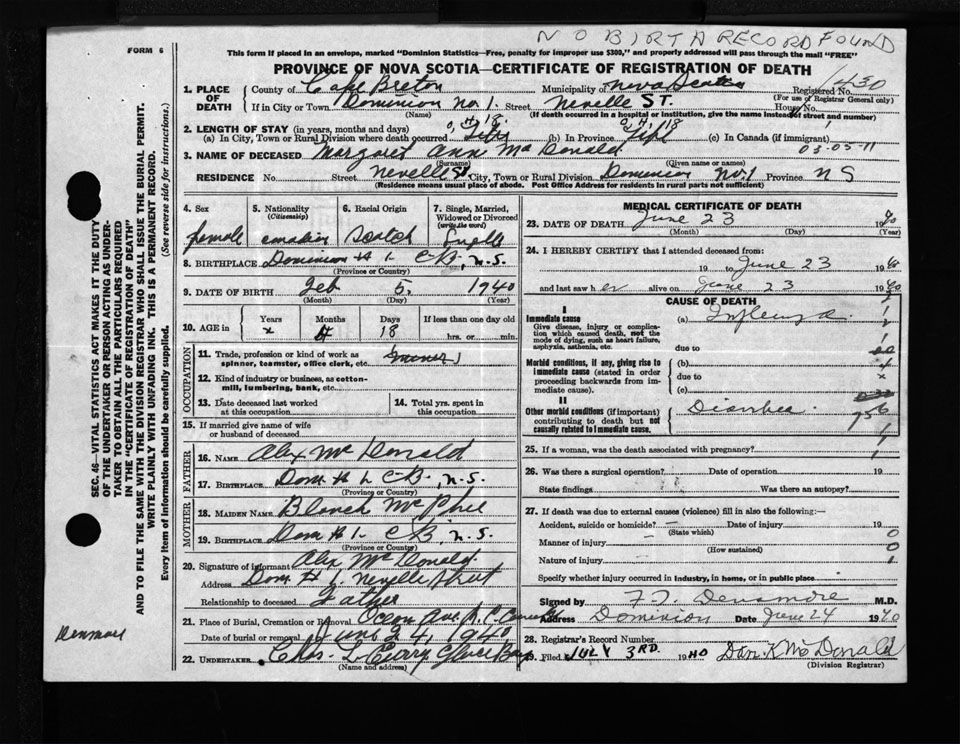 NO BIRTH RECORD FOUND
FORM 6
This form if placed in an envelope, marked "Dominion Statistics—Free, penalty for improper use $300," and properly addressed will pass through the mail "FREE"
PROVINCE OF NOVA SCOTIA—CERTIFICATE OF REGISTRATION OF DEATH
1. PLACE OF DEATH
County of Cape Breton Municipality of Nova Scotia Registered No. 1430
(For use of Registrar General only)
If in City or Town Dominion No 1. Street Nevelle ST. House No.
(Name) (If death occurred in a hospital or institution, give the name instead of street and number)
2. LENGTH OF STAY (in years, months and days)
(a) In City, Town or Rural Division where death occurred 0, 4, 18. Life (b) In Province 0, 4, 18 Life (c) In Canada (if immigrant)
03-05-11
3. NAME OF DECEASED Margaret Ann Mc Donald
(Surname) (Given name or names)
RESIDENCE No. Street Nevelle St City, Town or Rural Division Dominion No. 1 Province N S
(Residence means usual place of abode. Post Office Address for residents in rural parts not sufficient)
4. Sex female
5. Nationality (Citizenship) canadian
6. Racial Origin Scotch
7. Single, Married, Widowed or Divorced (write the word) Single
8. BIRTHPLACE Dominion # 1. C-B, N.S.
(Province or Country)
9. DATE OF BIRTH Feb 5, 1940
(Month) (Day) (Year)
10. AGE in Years x Months 4 Days 18 If less than one day old hrs. or min.
OCCUPATION
11. Trade, profession or kind of work as spinner, teamster, office clerk, etc.
12. Kind of industry or business, as cotton-mill, lumbering, bank, etc.
13. Date deceased last worked at this occupation
14. Total yrs. spent in this occupation
15. If married give name of wife or husband of deceased
FATHER
16. NAME Alex Mc Donald
17. BIRTHPLACE Dom # 1. C-B, N.S.
(Province or Country)
MOTHER
18. MAIDEN NAME Blanch McPhee
19. BIRTHPLACE Dom # 1. C-B, N.S.
(Province or Country)
20. Signature of informant Alex Mc Donald
Address Dom # 1. Nevelle street
Relationship to deceased Father
21. Place of Burial, Cremation or Removal Ocean Ave. R.C.
Date of burial or removal June 24, 1940
22. UNDERTAKER Chas. L. Curry Glace Bay
(Name and address)
MEDICAL CERTIFICATE OF DEATH
23. DATE OF DEATH June 23 1940
(Month) (Day) (Year)
24. I HEREBY CERTIFY that I attended deceased from:
19 to June 23 1940
and last saw her alive on June 23 1940
CAUSE OF DEATH
I
Immediate cause
Give disease, injury or complication which caused death, not the mode of dying, such as heart failure, asphyxia, asthenia, etc.
(a) Influenza.
due to
Morbid conditions, if any, giving rise to immediate cause (stated in order proceeding backwards from immediate cause).
(b)
due to
(c)
II
Other morbid conditions (if important) contributing to death but not causally related to immediate cause.
Diarrhea.
25. If a woman, was the death associated with pregnancy?
26. Was there a surgical operation? Date of operation 19
State findings Was there an autopsy?
27. If death was due to external causes (violence) fill in also the following:—
Accident, suicide or homicide? — Date of injury 19
(State which)
Manner of injury —
(How sustained)
Nature of injury —
Specify whether injury occurred in industry, in home, or in public place
Signed by F. T. Densmore M.D.
Address Dominion Date June 24 1940
28. Registrar's Record Number
29. Filed JULY 3RD. 1940 Dan. K McDonald
(Division Registrar)
SEC. 46—VITAL STATISTICS ACT MAKES IT THE DUTY OF THE UNDERTAKER OR PERSON ACTING AS UNDERTAKER TO OBTAIN ALL THE PARTICULARS REQUIRED IN THE "CERTIFICATE OF REGISTRATION OF DEATH" AND TO FILE THE SAME WITH THE DIVISION REGISTRAR WHO SHALL ISSUE THE BURIAL PERMIT.
WRITE PLAINLY WITH UNFADING INK. THIS IS A PERMANENT RECORD.
Every item of information should be carefully supplied. (See reverse side for instructions.)